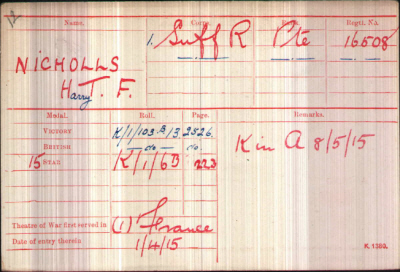 Name. Corps. Rank. Regtl. No.
1. Suff R Pte 16508
NICHOLLS
Harry T. F.
Medal. Roll. Page. Remarks.
VICTORY K/1/103.B/3 2526.
BRITISH — do — — do —
15 STAR K/1/6B 223
K in A 8/5/15
Theatre of War first served in (1) France
Date of entry therein 1/4/15
K. 1380.